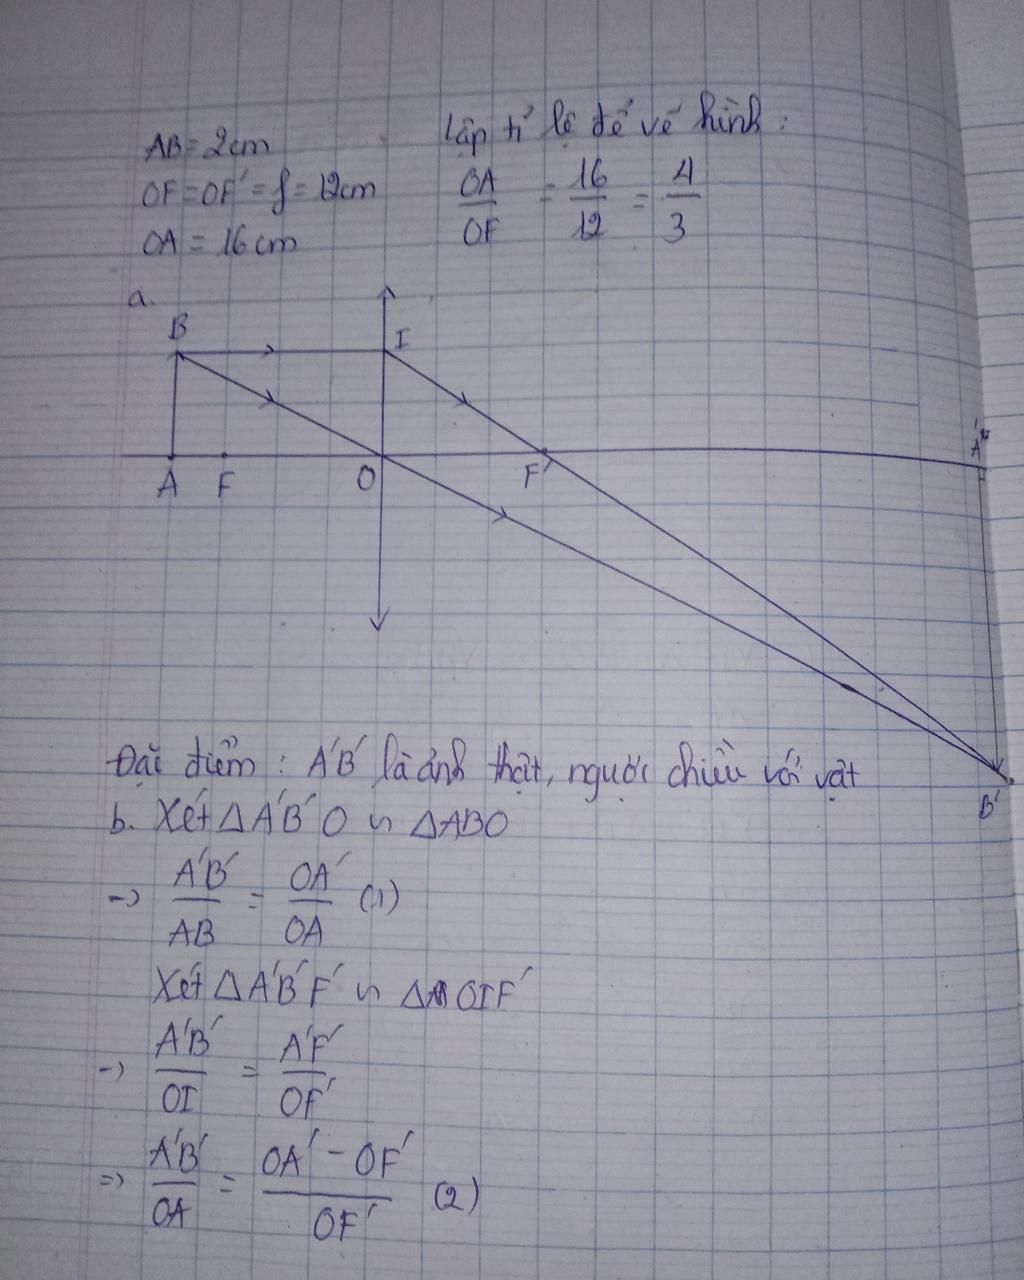 AB = 2cm
OF = OF' = f = 12cm
OA = 16cm
Lập tỉ lệ để vẽ hình :
OA/OF = 16/12 = 4/3
a.
B
I
A'
A
F
O
F'
B'
Đặc điểm : A'B' là ảnh thật, ngược chiều với vật
b. Xét ΔA'B'O ∽ ΔABO
-> A'B'/AB = OA'/OA (1)
Xét ΔA'B'F' ∽ ΔOIF'
-> A'B'/OI = A'F'/OF'
=> A'B'/OA = OA' - OF'/OF' (2)